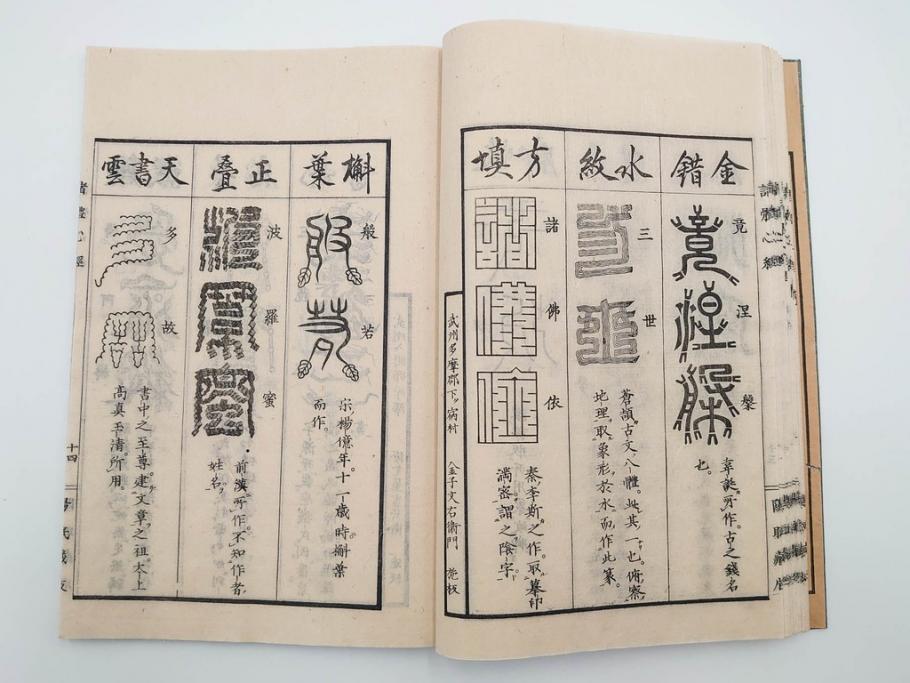 金錯
竟
涅
槃
韋誕所作。古之錢名
也。
水紋
三
世
蒼頡古文八體。此其一也。俯察
地理。取象形。於水而作此篆。
方填
諸
佛
依
秦李斯之作。取摹印
滿密。謂之陰字。
武州多摩郡下
村
八王子文右衛門
施板
槲葉
般
若
宗楊億年。十一歲時槲葉
而作。
正疊
波
羅
蜜
前漢所作。不知作者
姓名。
天書雲
多
故
書中之至尊。建文章之祖。太上
高真玉清所用。
十四